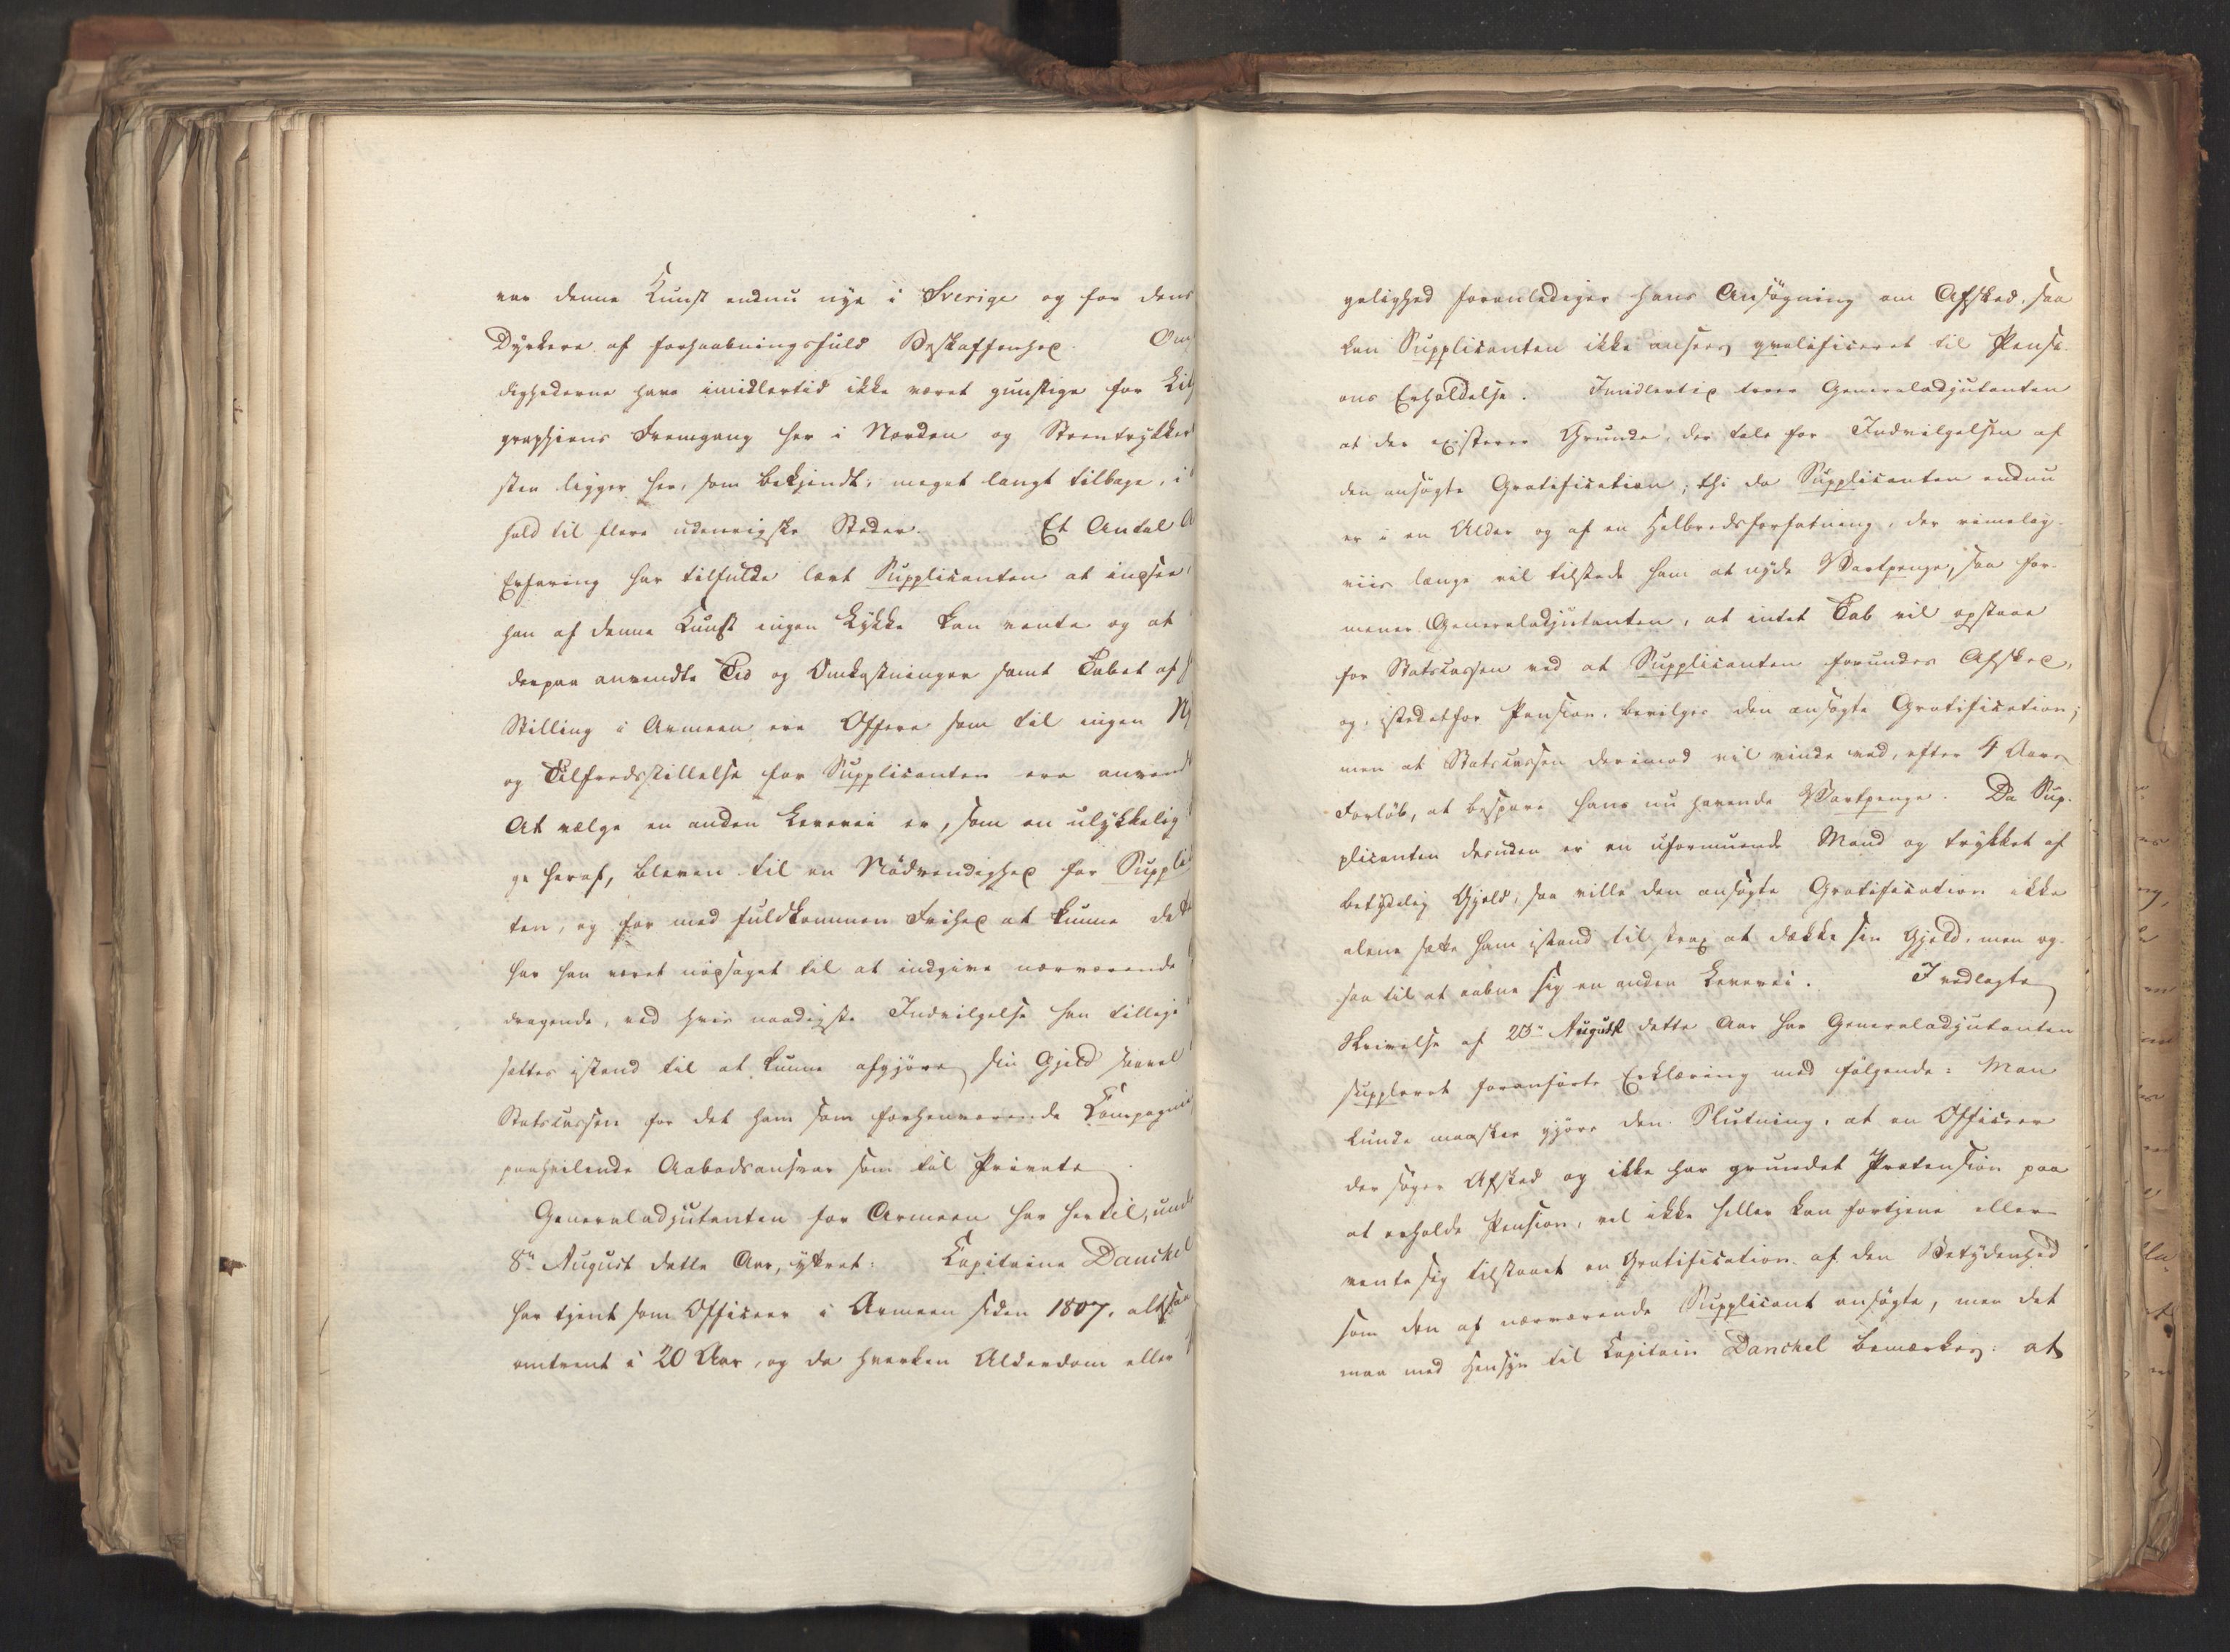 var denne Kunst endnu nye i Sverige og for dens
Dyrkere af forhaabningsfuld Beskaffenhed. Om
dighederne have imidlertid ikke været gunstige for Lit
graphiens Fremgang her i Norden og Steentrykker
sten ligger her, som bekjendt, meget langt tilbage, i
hold til flere udenrigske Steder. Et Antal
Erfaring har tilfulde lært Supplicanten at indsee,
han af denne Kunst ingen Lykke kan vente og at
derpaa anvendte Tid og Omkostninger samt Tabet af
Stilling i Armeen ere Offere som til ingen
og Tilfredsstillelse for Supplicanten ere anvend
At vælge en anden Levevei er, som en ulykkelig
ge heraf, bleven til en Nödvendighed for Suppli
ten, og for med fuldkommen Frihed at kunne
har han været nödsaget til at indgive nærværende
dragende, ved hvis naadigste Indvilgelse han tillige
sættes istand til at kunne afgjöre sin Gjeld saavel
Statscassen for det ham som forhenværende Compagnie
paahvilende Aabodsansvar som til Private
Generaladjutanten for Armeen har hertil, und
8de August dette Aar, yttret: Capitaine Danchel
har tjent som Officeer i Armeen siden 1807, altsaa
omtrent i 20 Aar, og da hverken Alderdom eller
gelighed foranlediger hans Ansögning om Afsked, saa
kan Supplicanten ikke ansees qvalificeret til Pensi-
ons Erholdelse. Imidlertid troer Generaladjutanten
at der existerer Grunde, der tale for Indvilgelsen af
den ansögte Gratification; thi da Supplicanten endnu
er i en Alder og af en Helbredsforfatning, der rimelig-
viis længe vil tilstede ham at nyde Vartpenge, saa for-
mener Generaladjutanten, at intet Tab vil opstaae
for Statscassen ved at Supplicanten forundes Afsked,
og, istedetfor Pension, bevilges den ansögte Gratification;
men at Statscassen derimod vil vinde ved, efter 4 Aars
Forlöb, at bespare hans nu havende Vartpenge. Da Sup-
plicanten desuden er en uformuende Mand og trykket af
betydelig Gjeld, saa ville den ansögte Gratification ikke
alene sætte ham istand til strax at dække sin Gjeld, men og-
saa til at aabne sig en anden Levevei. I vedlagte
Skrivelse af 23de August dette Aar har Generaladjutanten
suppleret foranförte Erklæring med fölgende: Man
kunde maaskee gjöre den Slutning, at en Officeer
der söger Afsked og ikke har grundet Prætension paa
at erholde Pension, vel ikke heller kan fortjene eller
vente sig tilstaaet en Gratification af den Betydenhed
som den af nærværende Supplicant ansögte, men det
maa med Hensyn til Capitain Danchel bemærkes: at